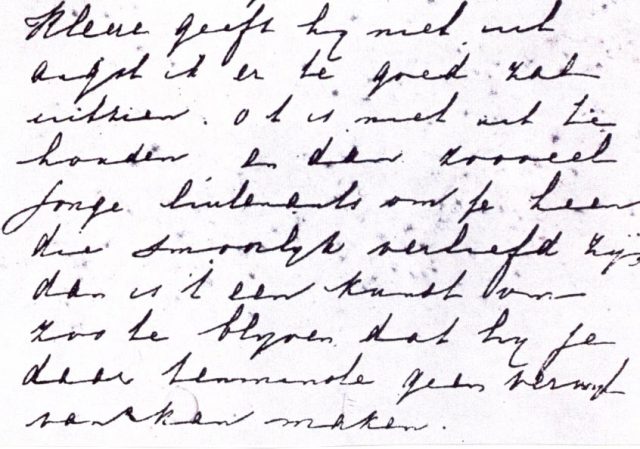 Kleur geeft hij niet uit
angst ik er te goed zal
uitzien. O t is niet uit te
houden en dan zooveel
jonge lintenants om je heen
die smoorlijk verliefd zijn
dan is 't een kunst om
zoo te blijven dat hij je
daar tenminste geen verwijt
van kan maken.